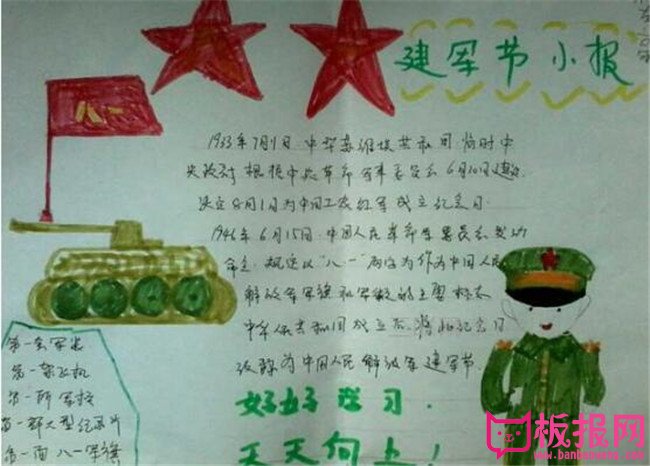 建军节小报
八一
1933年7月1日,中华苏维埃共和国临时中
央政府根据中央革命军事委员会6月30日建议
决定8月1日为中国工农红军成立纪念日
1946年6月15日,中国人民革命军事委员会发动
命令,规定以"八·一"两字为作为中国人民
解放军军旗和军徽的主要标志
中华人共和国成立后,将此纪念日
改称为中国人民解放军建军节
第一套军装
第一架飞机
第一所军校
第一部大型纪录片
第一面八一军旗
好好学习,
天天向上!
板报网
www.banbaowang.com